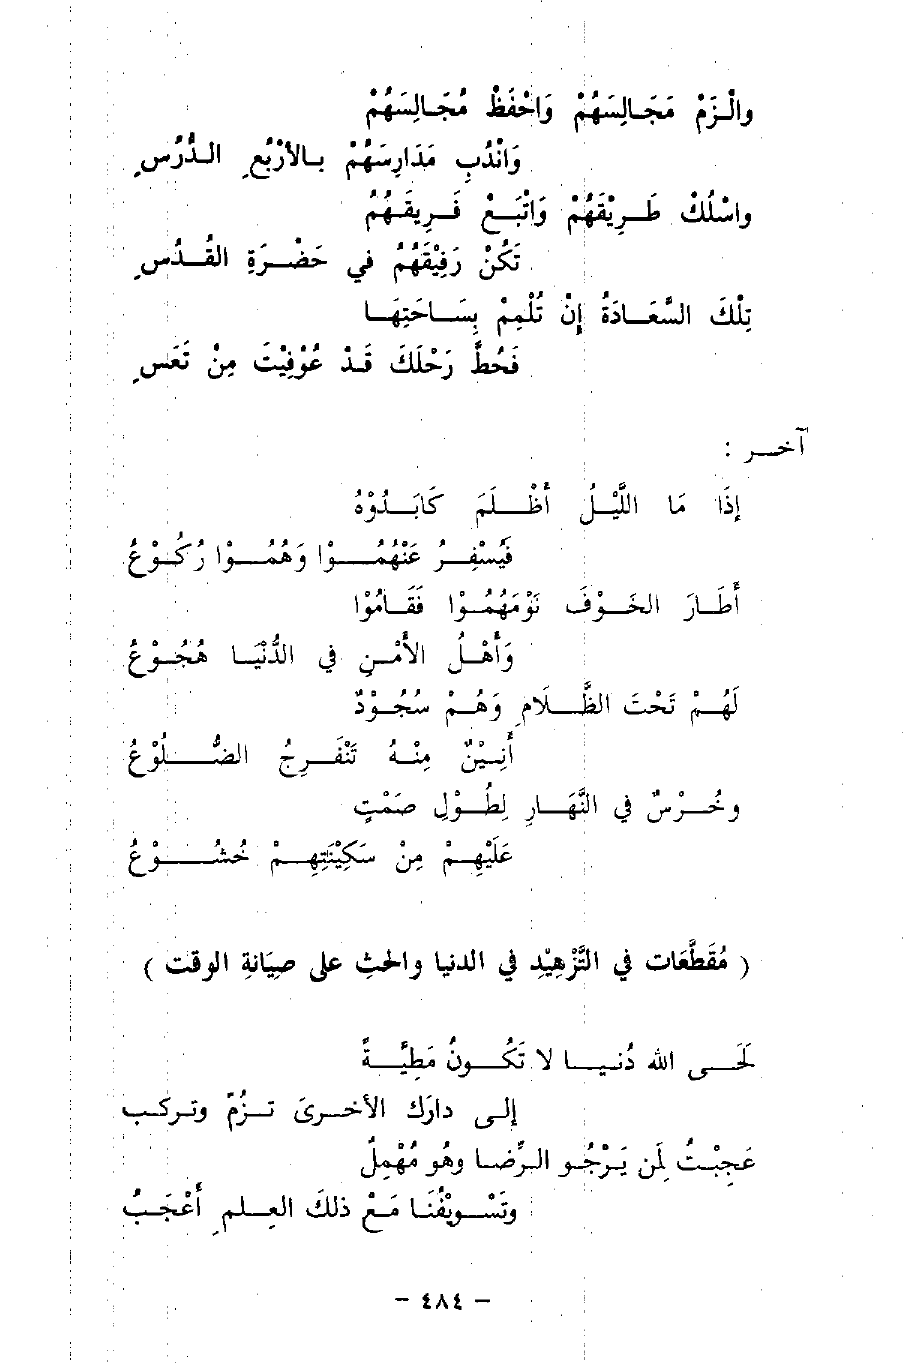 والْـزَمْ مَجَـالِسَهُمْ وَاحْفَظْ مُجَـالِسَهُمْ
وَانْدُبِ مَدَارِسَهُمْ بـالأرْبُعِ الـدُّرُسِ
واسْلُكْ طَـرِيْقَهُمْ وَاتْبَـعْ فَـرِيقَهُمُ
تَكُنْ رَفِيْقَهُمُ في حَضْـرَةِ القُـدُسِ
تِلْكَ السَّعَـادَةُ إِنْ تُلْمِمْ بِسَـاحَتِهَـا
فَحُطَّ رَحْلَكَ قَـدْ عُوْفِيْتَ مِنْ تَعَسِ
آخـر :
إِذَا مَا اللَّيْـلُ أظْـلَمَ كَابَـدُوْهُ
فَيُسْفِـرُ عَنْهُمُـوْا وَهُمُـوْا رُكُـوْعُ
أَطَـارَ الخَـوْفَ نَوْمَهُمُـوْا فَقَـامُوْا
وَأَهْـلُ الأمْـنِ في الدُّنْيَـا هُجُـوْعُ
لَهُـمْ تَحْتَ الظَّـلَامِ وَهُـمْ سُجُـوْدٌ
أَنِـيْنٌ مِنْـهُ تَنْفَـرِجُ الضُّـلُوْعُ
وخُـرْسٌ في النَّهَـارِ لِطُـوْلِ صَمْتٍ
عَلَيْهِـمْ مِنْ سَكِيْنَتِهِـمْ خُشُـوْعُ
( مُقَطَّعَات في التَّزْهِيْدِ في الدنيا والحثِ على صِيَانةِ الوقت )
لَحَـى الله دُنيـا لا تَكُـونُ مَطِيَّـةً
إلـى دارَك الأخـرىَ تـزُمّ وتـركـب
عَجِبْـتُ لِمَن يَـرْجُـو الـرِّضـا وهُو مُهْمِلُ
وتَسْـوِيْفُنَا مَـعْ ذلكَ العِـلمِ أَعْجَـبُ
– ٤٨٤ –